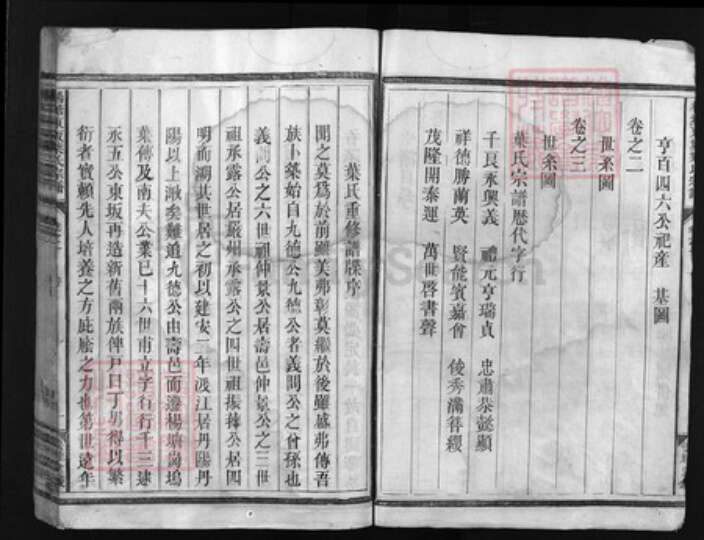 亨百四六公祀產　基圖
卷之二
世系圖
卷之三
世系圖
葉氏宗譜歷代字行
千良永興義　禮元亨瑞貞　忠肅恭懿顯
祥德勝蘭英　賢能賓嘉會　俊秀滿簪纓
茂隆開泰運　萬世啓書聲
葉氏重修譜牒序
聞之莫爲於前雖美弗彰莫繼於後雖盛弗傳吾
族卜築始自九德公九德公者義問公之曾孫也
義問公之六世祖仲景公居壽邑仲景公之三世
祖承露公居嚴州承露公之四世祖振掾公居四
明而湖其世居之初以建安二年渡江居丹陽丹
陽以上澉矣難道九德公由壽邑而遷楊塘崗塢
葉傳及南夫公業已十六世甫立字行行千三逮
永五公東坂再造新舊兩族俾戶口丁男得以繁
衍者實賴先人培養之方庇庥之力也第世遠年